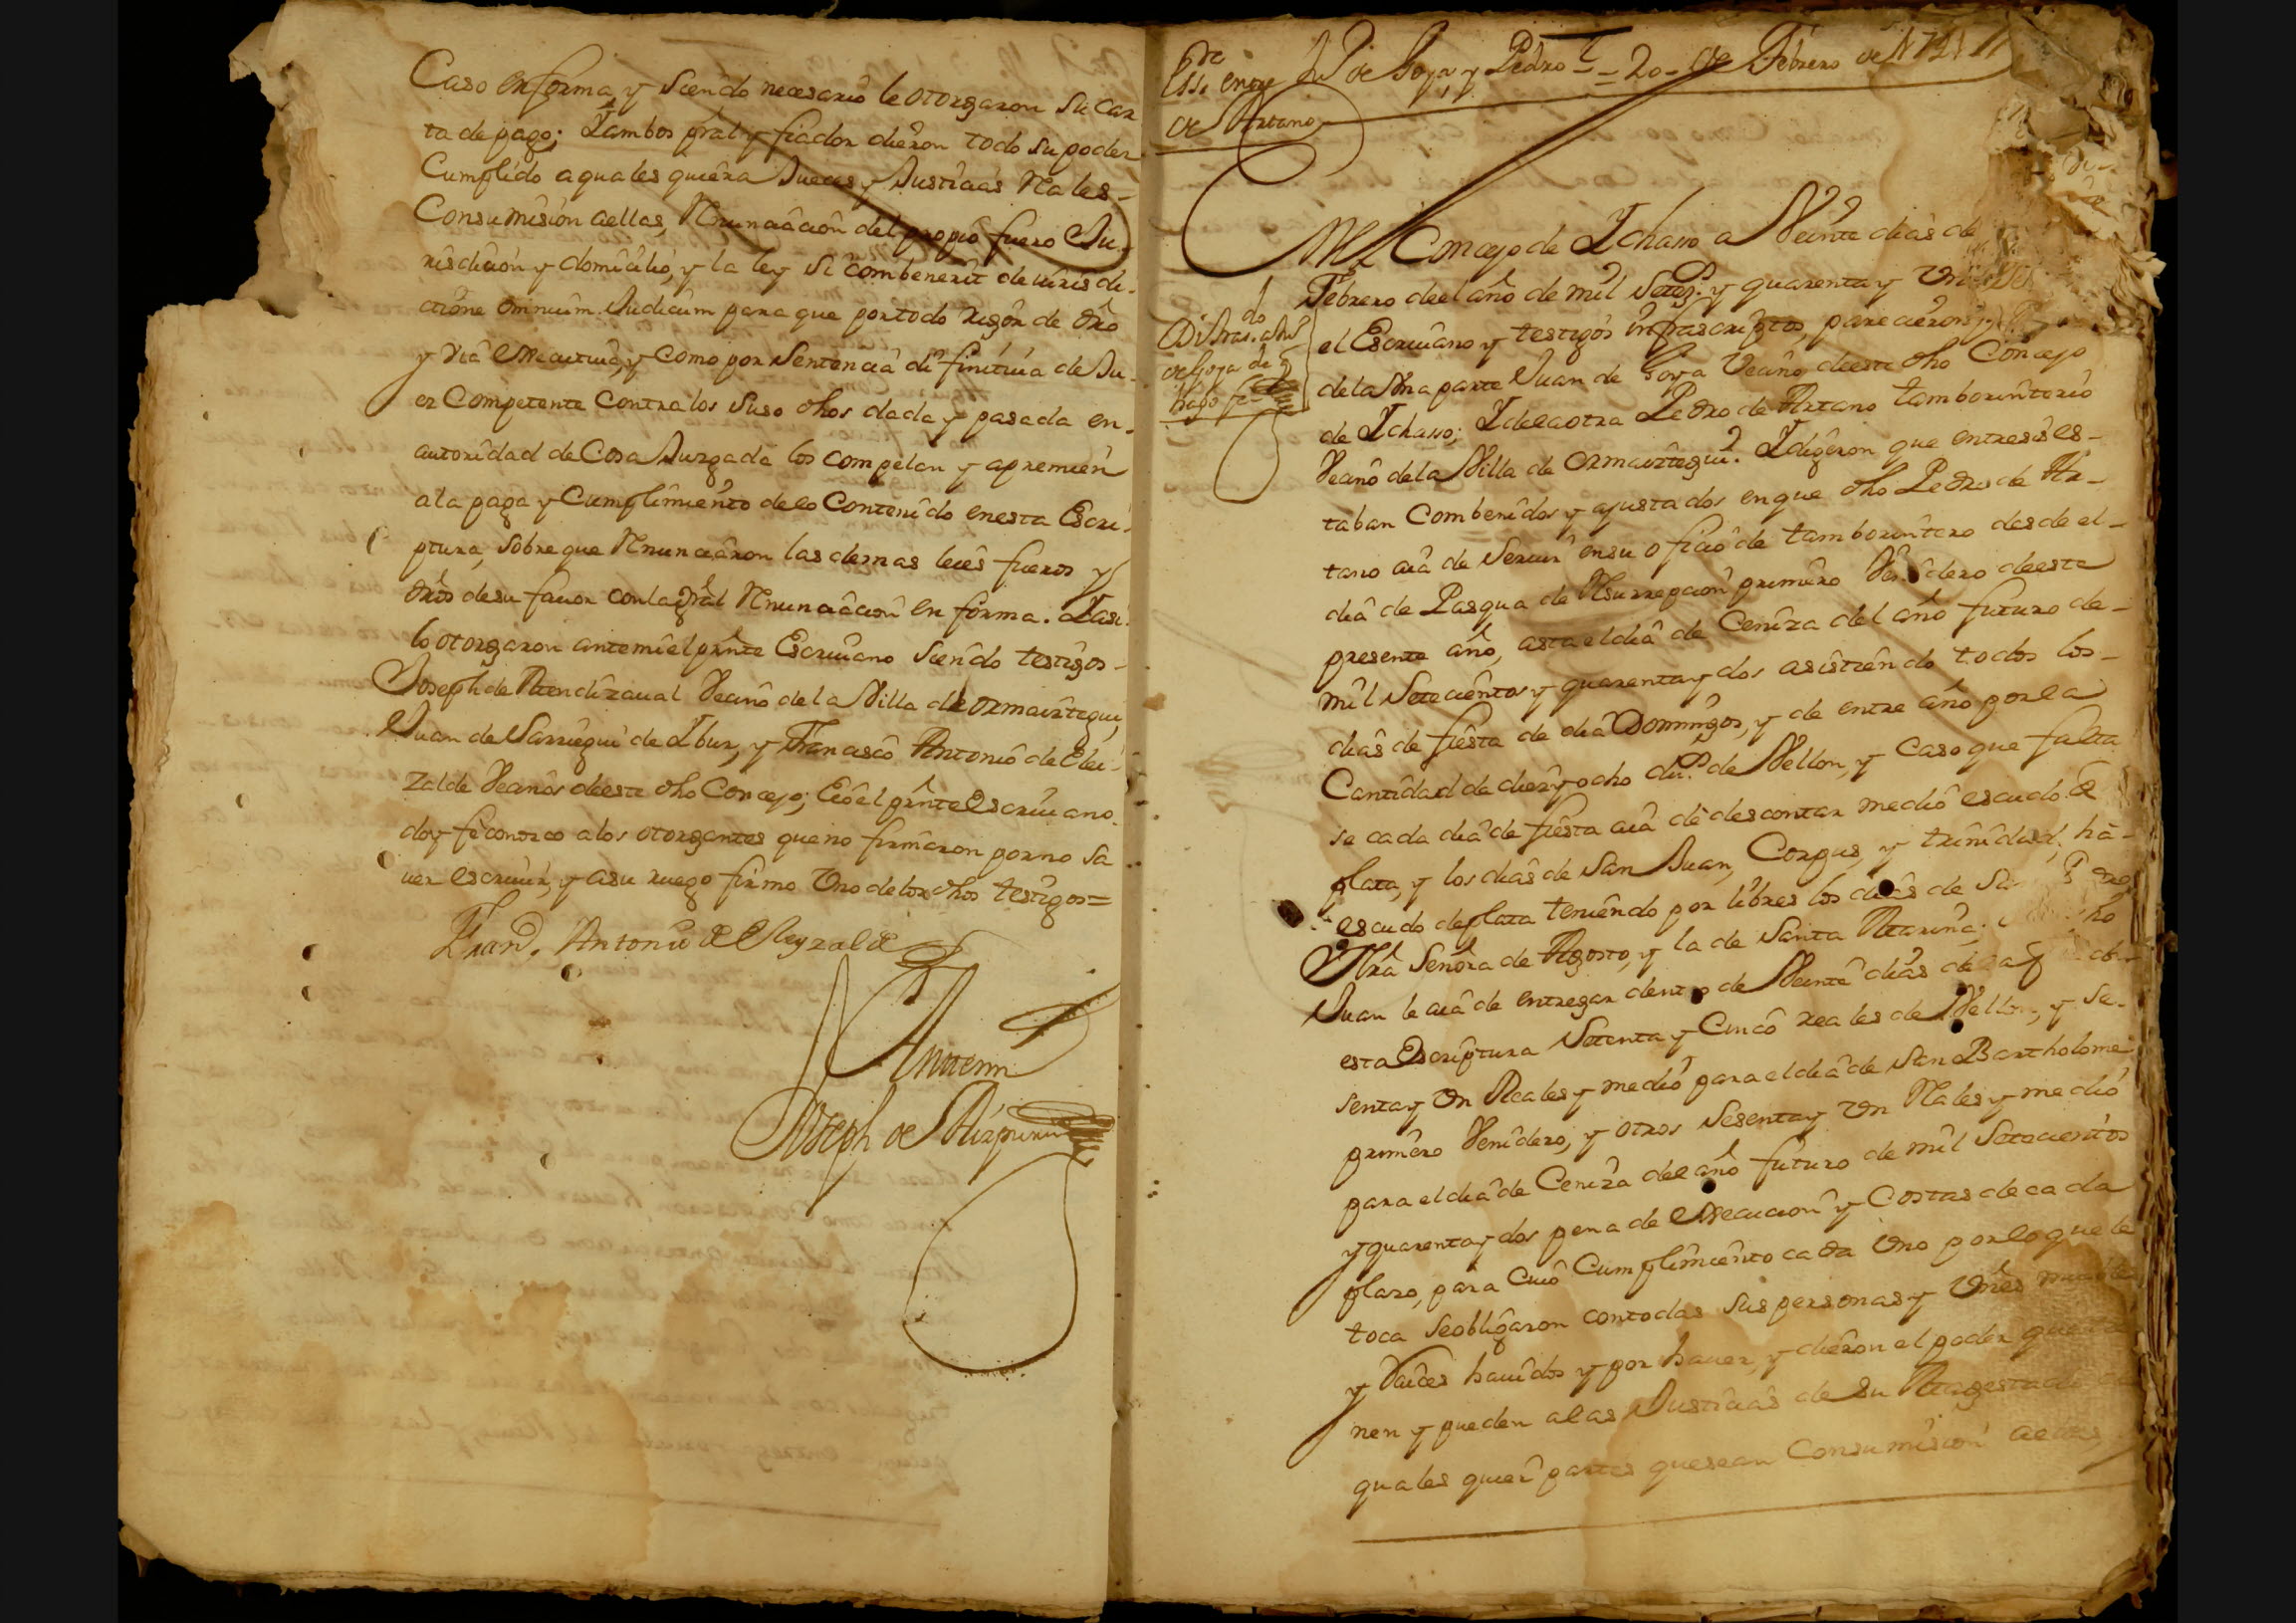 Caso enforma, y siendo necesario le otorgaron su car
ta de pago; Y ambos pral y fiador dieron todo su poder
Cumplido a quales quiera Jueces y Justicias Rales
Consumision aellas, Rnunciacion del propio fuero Ju-
risdicion y domicilio, y la ley si combenerit de iuris di-
ctione omnium Judicum para que portodo rigor de dro
y via executiva, y como por Sentencia difinitiva de Ju-
ez Competente contra los suso dhos dada y pasada en
autoridad de Cosa Juzgada los compelan y apremien
ala paga y Cumplimiento delo Contenido enesta Escri-
ptura, sobre que Rnunciaron las demas leies fueros y
dros de su favor con la gral Rnunciacion en forma. Y asi
lo otorgaron antemi el prnte Escriuano siendo testigos
Joseph de Mendizaual Vecino de la Villa de ormaiztegui,
Juan de Sarriegui de Ybur, y Francisco Antonio de Elei-
zalde Vecinos deeste dho Concejo; E io el prnte Escriuano
doy fe conozco a los otorgantes que no firmaron por no sa
uer escriuir, y asu ruego firmo Uno delos dhos testigos=
Fran. Antonio de Eleyzalde
Antemi
Joseph de Aizpuru
Ess. entre Ju de Goya, y Pedro = 20 de Febrero de 1741
de Artano
En el Concejo de Ychasso a Veinte dias de
Febrero deel año de mil Setez. y quarenta y Un
el Escriuano y testigos infrascriptos, parecieron
dela Una parte Juan de Goya Vecino deeste dho Concejo
de Ychasso; Y dela otra Pedro de Artano tamborintero
Vecino dela Villa de Ormaiztegui. Y digeron que entresi es-
taban Combenidos y ajustados enque dho Pedro de Ar-
tano aia de Seruir ensu oficio de tamborintero desde el
dia de Pasqua de Rsurrepcion primero Venidero deeste
presente año, asta el dia de Ceniza del año futuro de
mil Setecientos y quarenta y dos asistiendo todos los
dias de fiesta de dia Domingos, y de entre año por la
Cantidad de diez y ocho du.s de Vellon, y Caso que falta
se cada dia de fiesta aia de descontar medio escudo de
plata, y los dias de San Juan, Corpus, y trinidad,
escudo deplata teniendo por libres los dias de
Nra Señora de Agosto, y la de Santa Marina;
Juan le aia de entregar dentro de Veinte dias de
esta Escriptura Setenta y Cinco reales de Vellon, y Se-
senta y Un Reales y medio para el dia de San Bartholome
primero Venidero, y otros Sesenta y Un Rales y medio
para el dia de Ceniza del año futuro de mil Setecientos
y quarenta y dos pena de execucion y Costas de cada
plazo, para Cuio Cumplimiento cada Uno por lo que le
toca seobligaron contodas sus personas y Vnes muebles
y Raices hauidos y por hauer, y dieron el poder que
nen y pueden alas Justicias de su Magestad
quales quier partes quesean Consumision aellas